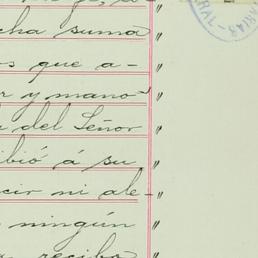 cha suma
os que a-
r y mano "
a del Señor "
ibió á su "
cir ni ale- "
ningún "
reciba "